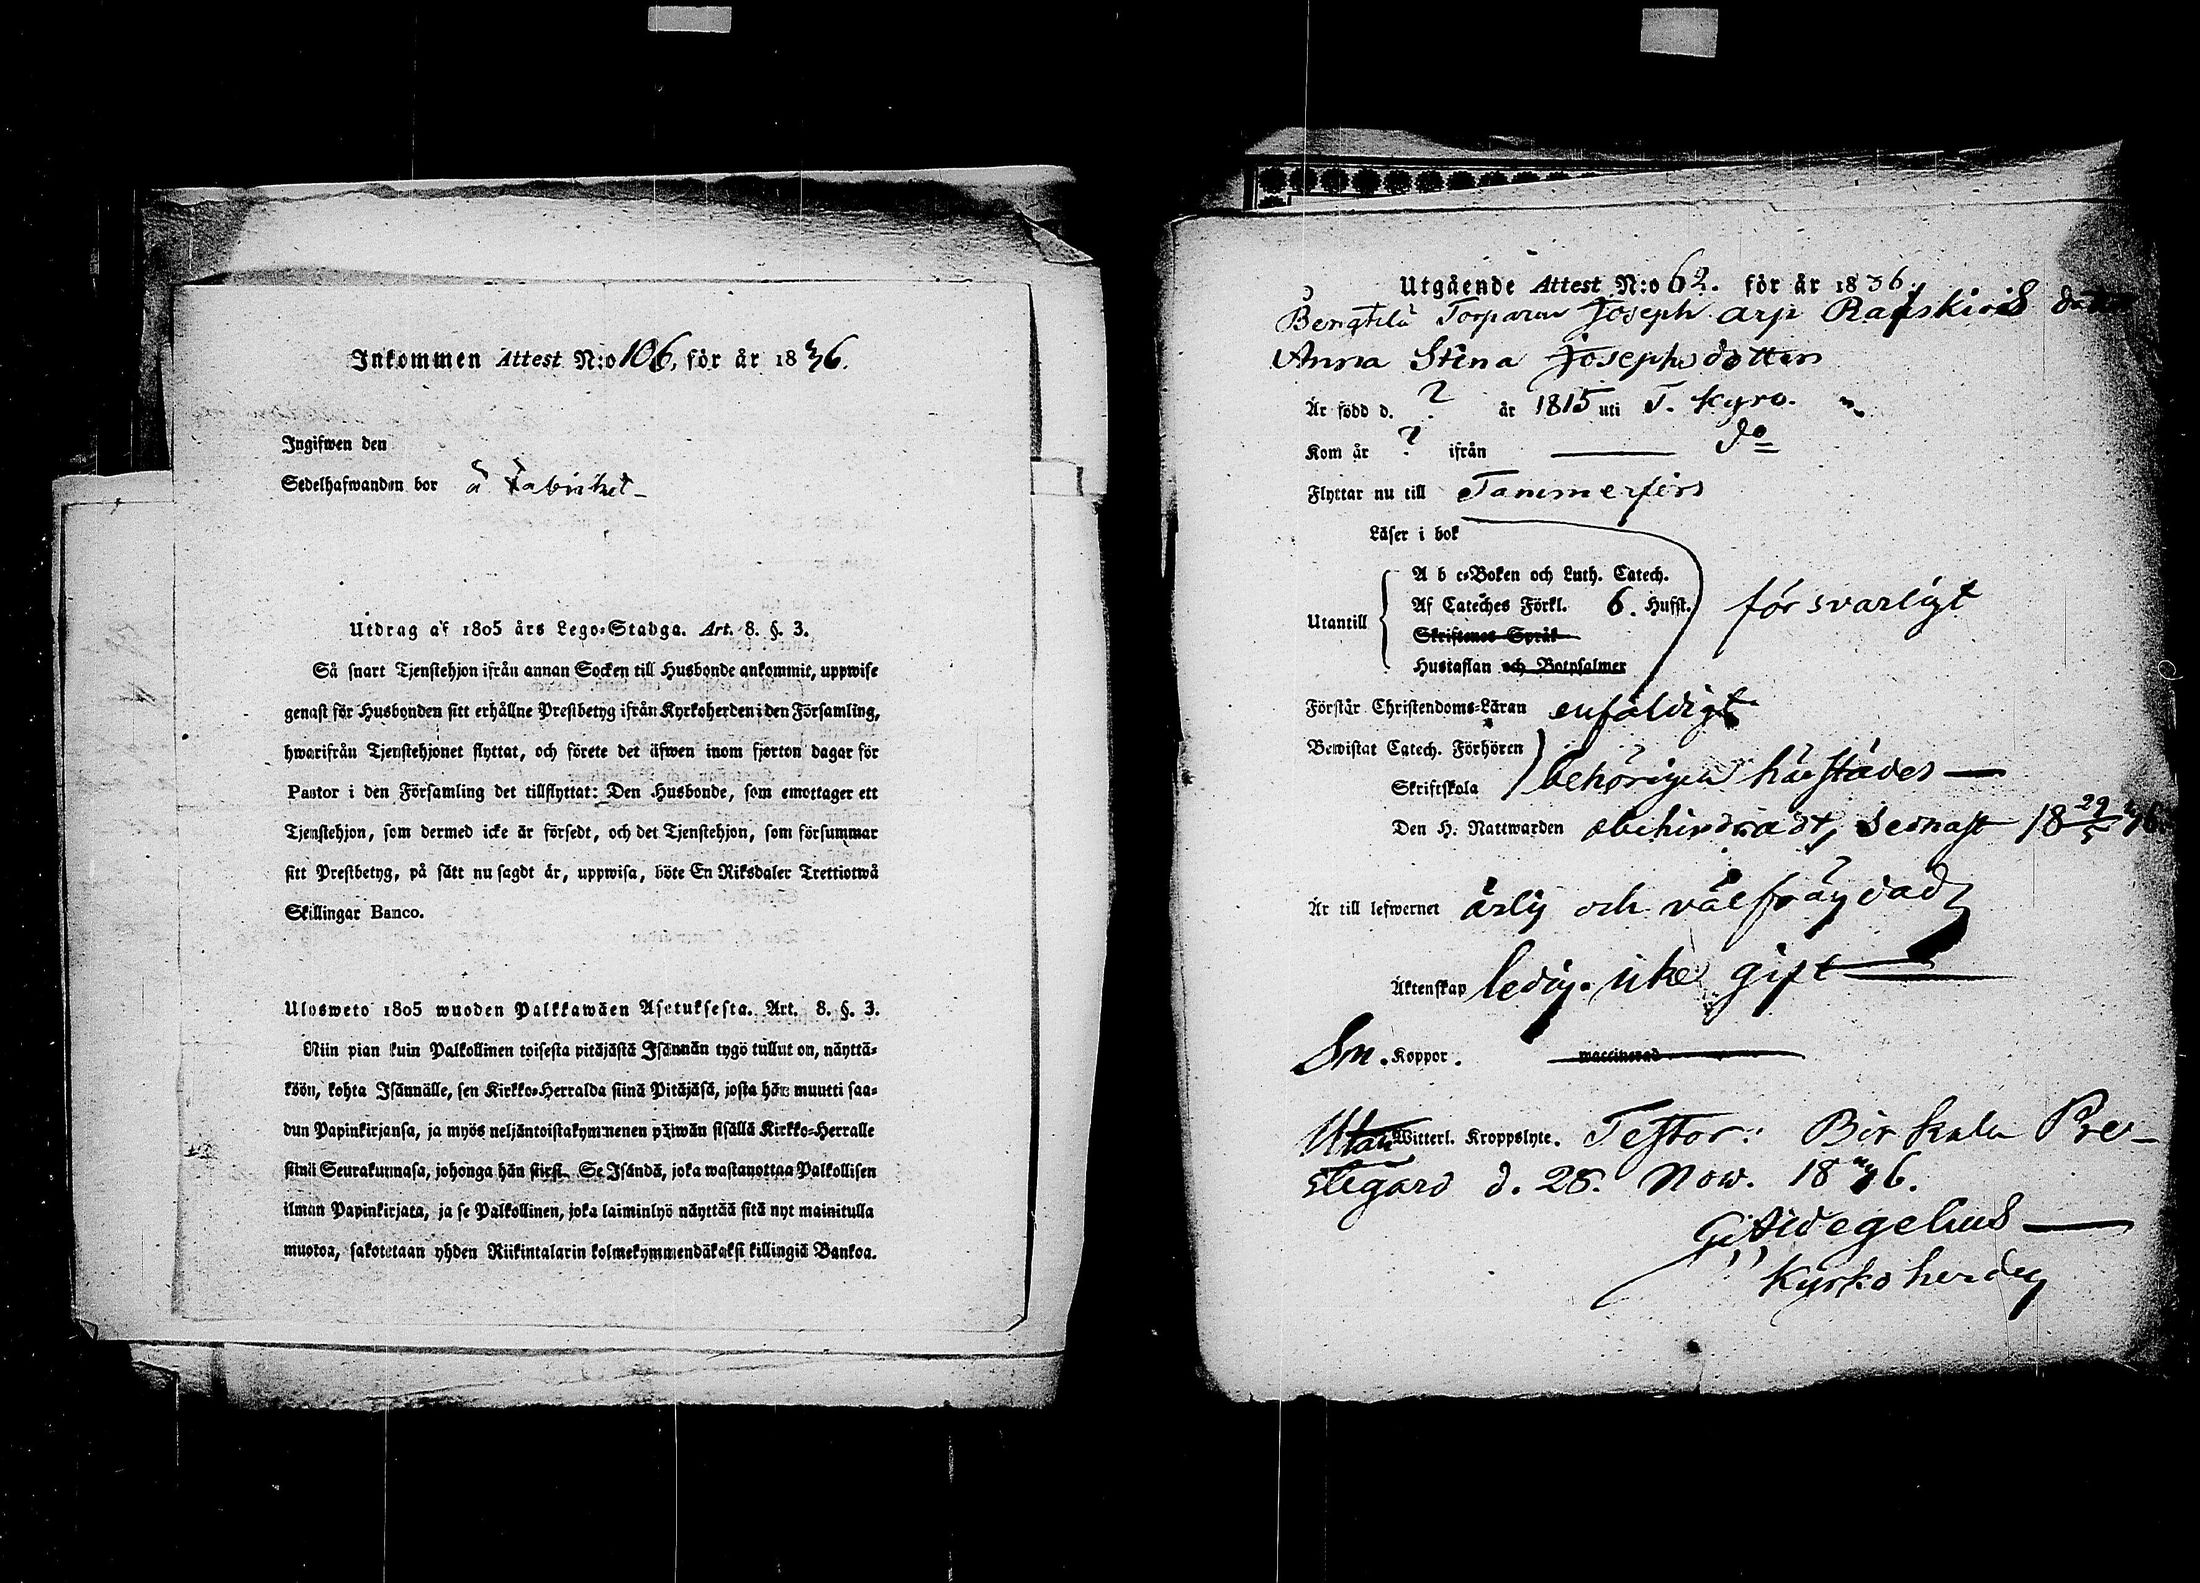 Inkommen Attest N:o 106, för år 1836.
Ingifwen den
Sedelhafwanden bor å Fabriket
Utdrag af 1805 års Lego-Stadga. Art. 8. §. 3.
Så snart Tjenstehjon ifrån annan Socken till Husbonde ankommit, uppwise
genast för Husbonden sitt erhållne Prestbetyg ifrån Kyrkoherden i den Församling,
hwarifrån Tjenstehjonet flyttat, och förete det äfwen inom fjorton dagar för
Pastor i den Församling det tillflyttat: Den Husbonde, som emottager ett
Tjenstehjon, som dermed icke är försedt, och det Tjenstehjon, som försummar
sitt Prestbetyg, på sätt nu sagdt är, uppwisa, böte En Riksdaler Trettiotwå
Skillingar Banco.
Ulosweto 1805 wuoden Palkkawäen Asetuksesta. Art. 8. §. 3.
Niin pian kuin Palkollinen toisesta pitäjästä Isännän tygö tullut on, näyttä-
köön, kohta Isännälle, sen Kirkko-Herralda siinä Pitäjäsä, josta hän muutti saa-
dun Papinkirjansa, ja myös neljäntoistakymmenen päiwän sisällä Kirkko-Herralle
siinä Seurakunnasa, johonga hän siirsi. Se Isändä, joka wastanottaa Palkollisen
ilman Papinkirjata, ja se Palkollinen, joka laiminlyö näyttää sitä nyt mainitulla
muotoa, sakotetaan yhden Riikintalarin kolmekymmendäkaksi killingiä Bankoa.
Utgående Attest N:o 62. för år 1836.
Bengtilä Torparen Joseph arp
Anna Stina Josephsdotter
Är född d. ? år 1815 uti T. Kyro.
Kom år ? ifrån — do
Flyttar nu till Tammerfors
Läser i bok
A b c-Boken och Luth. Catech.
Utantill Af Cateches Förkl. 6. Hufst. försvarligt
Skriftenes Språk
Hustaflan och Botpsalmer
Förstår Christendoms-Läran enfaldigt
Bewistat Catech. Förhören
Skriftskola behörigen härstädes —
Den H. Nattwarden obehindradt, sednast 18 29/5 36.
Är till lefwernet ärlig och välfrägdad
Äktenskap ledig icke gift
Sm. Koppor. waccinerad
Utan Witterl. Kroppslyte. Testor: Birkala Pre-
stegård d. 28. Nov. 1836.
Aidegelius —
Kyrkoherde